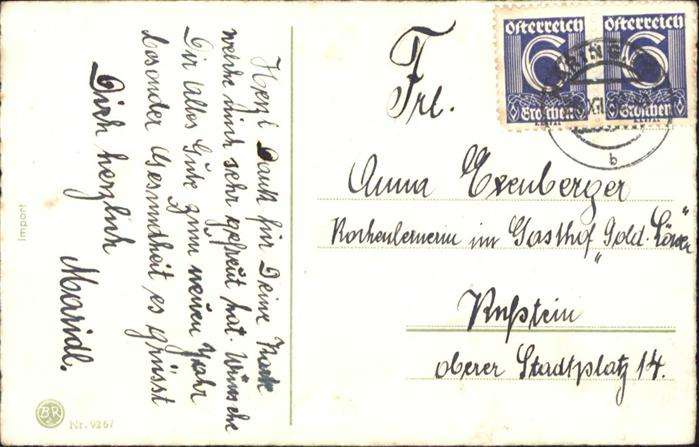 Herzl Dank für Deine Karte
welche mich sehr gefreut hat. Wünsche
Dir alles Gute zum neuen Jahr
besonder Gesundheit es grüsst
Dich herzlich
Maridl.
Österreich Österreich
6 6
Groschen Groschen
b
Frl.
Anna Exenberger
Kochenlernerin im Gasthof „Gold. Löwen"
Kufstein
oberer Stadtplatz 14.
Import
BR
Nr. 9267